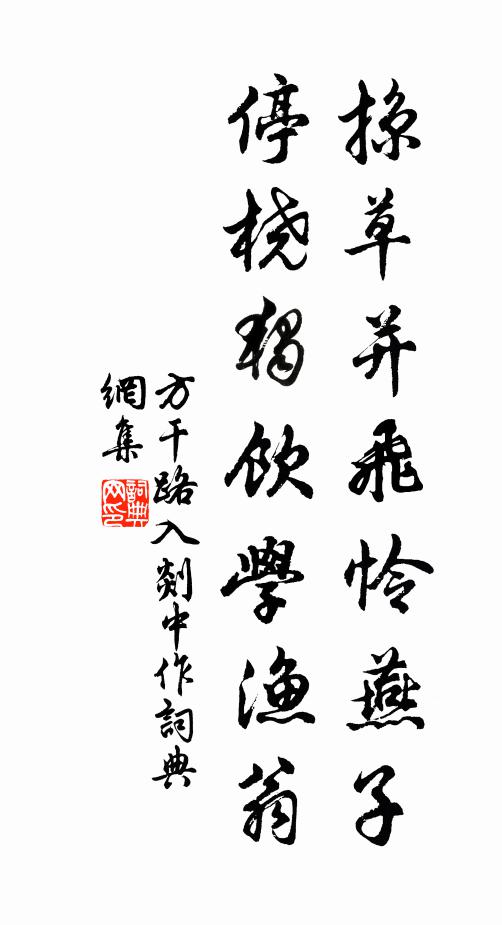 掠草并飛怜燕子
停桡獨飲學漁翁
方干路入剡中作詞典
網集
詞典網印